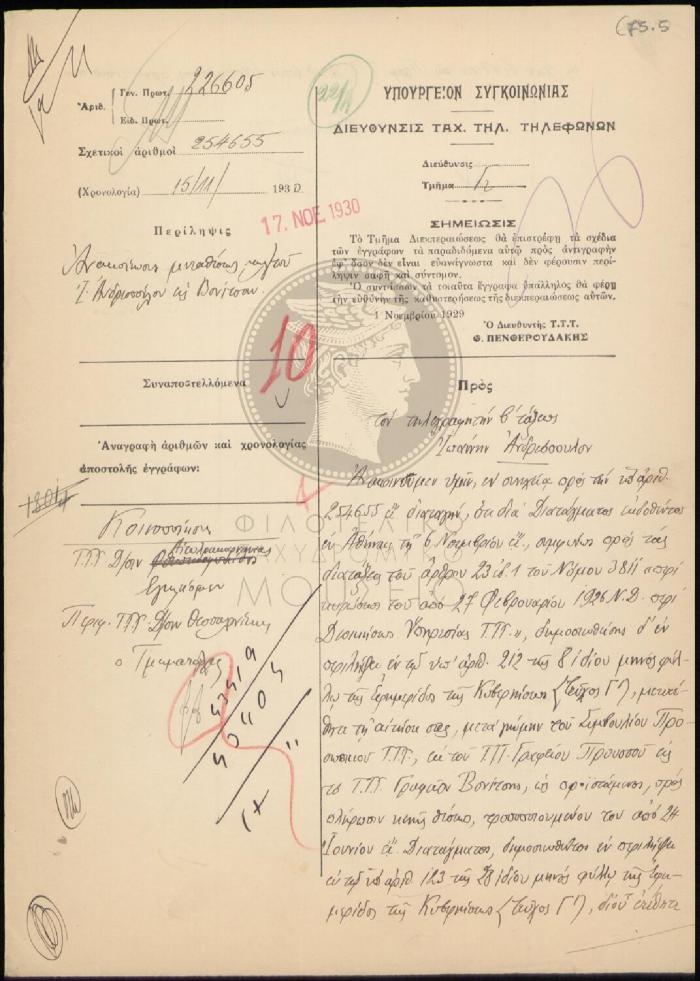 75.5
226605
Γεν. Πρωτ.
Ἀριθ.
Εἰδ. Πρωτ.
Σχετικοὶ ἀριθμοὶ 254655
(Χρονολογία) 15/11/ 1930
17. ΝΟΕ. 1930
Περίληψις
Ἀνακοίνωσις μεταθέσεως
Ι. Ἀνδρεοπούλου εἰς Βόνιτσαν.
10
Συναποστελλόμενα
Ἀναγραφὴ ἀριθμῶν καὶ χρονολογίας
ἀποστολῆς ἐγγράφων:
Κοινοποίησις
Τ.Τ.Τ. Δ/σιν Αἰτωλοακαρνανίας
Περιφ. Τ.Τ.Τ. Δ/σιν Θεσσαλονίκης
ὁ Τμηματάρχης
43419
50404
22/11
ΥΠΟΥΡΓΕΙΟΝ ΣΥΓΚΟΙΝΩΝΙΑΣ
ΔΙΕΥΘΥΝΣΙΣ ΤΑΧ. ΤΗΛ. ΤΗΛΕΦΩΝΩΝ
Διεύθυνσις
Τμῆμα
ΣΗΜΕΙΩΣΙΣ
Τὸ Τμῆμα Διεκπεραιώσεως θὰ ἐπιστρέφῃ τὰ σχέδια
τῶν ἐγγράφων τὰ παραδιδόμενα αὐτῷ πρὸς ἀντιγραφὴν
ἐφ' ὅσον δὲν εἶναι εὐανάγνωστα καὶ δὲν φέρουσιν περί-
ληψιν σαφῆ καὶ σύντομον.
Ὁ συντάσσων τὰ τοιαῦτα ἔγγραφα ὑπάλληλος θὰ φέρῃ
τὴν εὐθύνην τῆς καθυστερήσεως τῆς διεκπεραιώσεως αὐτῶν.
1 Νοεμβρίου 1929
Ὁ Διευθυντὴς Τ.Τ.Τ.
Θ. ΠΕΝΘΕΡΟΥΔΑΚΗΣ
Πρὸς
τὸν τηλεγραφητὴν β' τάξεως
Ἰωάννην Ἀνδρεόπουλον
Ἀνακοινοῦμεν ὑμῖν, ἐν συνεχείᾳ πρὸς τὴν ὑπ' ἀριθ.
254655 ἐ.ἔ. διαταγήν, ὅτι διὰ Διατάγματος ἐκδοθέντος
ἐν Ἀθήναις τῇ 6 Νοεμβρίου ἐ.ἔ., συμφώνως πρὸς τὰς
διατάξεις τοῦ ἄρθρου 23 ἐδ. 1 τοῦ Νόμου 3811 «περὶ
κυρώσεως τοῦ ἀπὸ 27 Φεβρουαρίου 1926 Ν.Δ. περὶ
Διοικήσεως Ὑπηρεσίας Τ.Τ.Τ.», δημοσιευθέντος δ' ἐν
περιλήψει ἐν τῷ ὑπ' ἀριθ. 212 τῆς 8 ἰδίου μηνὸς φύλ-
λῳ τῆς Ἐφημερίδος τῆς Κυβερνήσεως (Τεῦχος Γ'), μετετέ-
θητε τῇ αἰτήσει σας, μετὰ γνώμην τοῦ Συμβουλίου Προ-
σωπικοῦ Τ.Τ.Τ., ἐκ τοῦ Τ.Τ. Γραφείου Προυσσοῦ εἰς
τὸ Τ.Τ.Τ. Γραφεῖον Βονίτσης, ὡς προϊστάμενος, πρὸς
πλήρωσιν κενῆς θέσεως, τροποποιουμένου τοῦ ἀπὸ 24
Ἰουνίου ἐ.ἔ. Διατάγματος, δημοσιευθέντος ἐν περιλήψει
ἐν τῷ ὑπ' ἀριθ. 123 τῆς 28 ἰδίου μηνὸς φύλλῳ τῆς Ἐφη-
μερίδος τῆς Κυβερνήσεως (Τεῦχος Γ'), δι' οὗ ἐτέθητε
ΦΙΛΟΤΕΛΙΚΟ
ΤΑΧΥΔΡΟΜΙΚΟ
ΜΟΥΣΕΙΟ